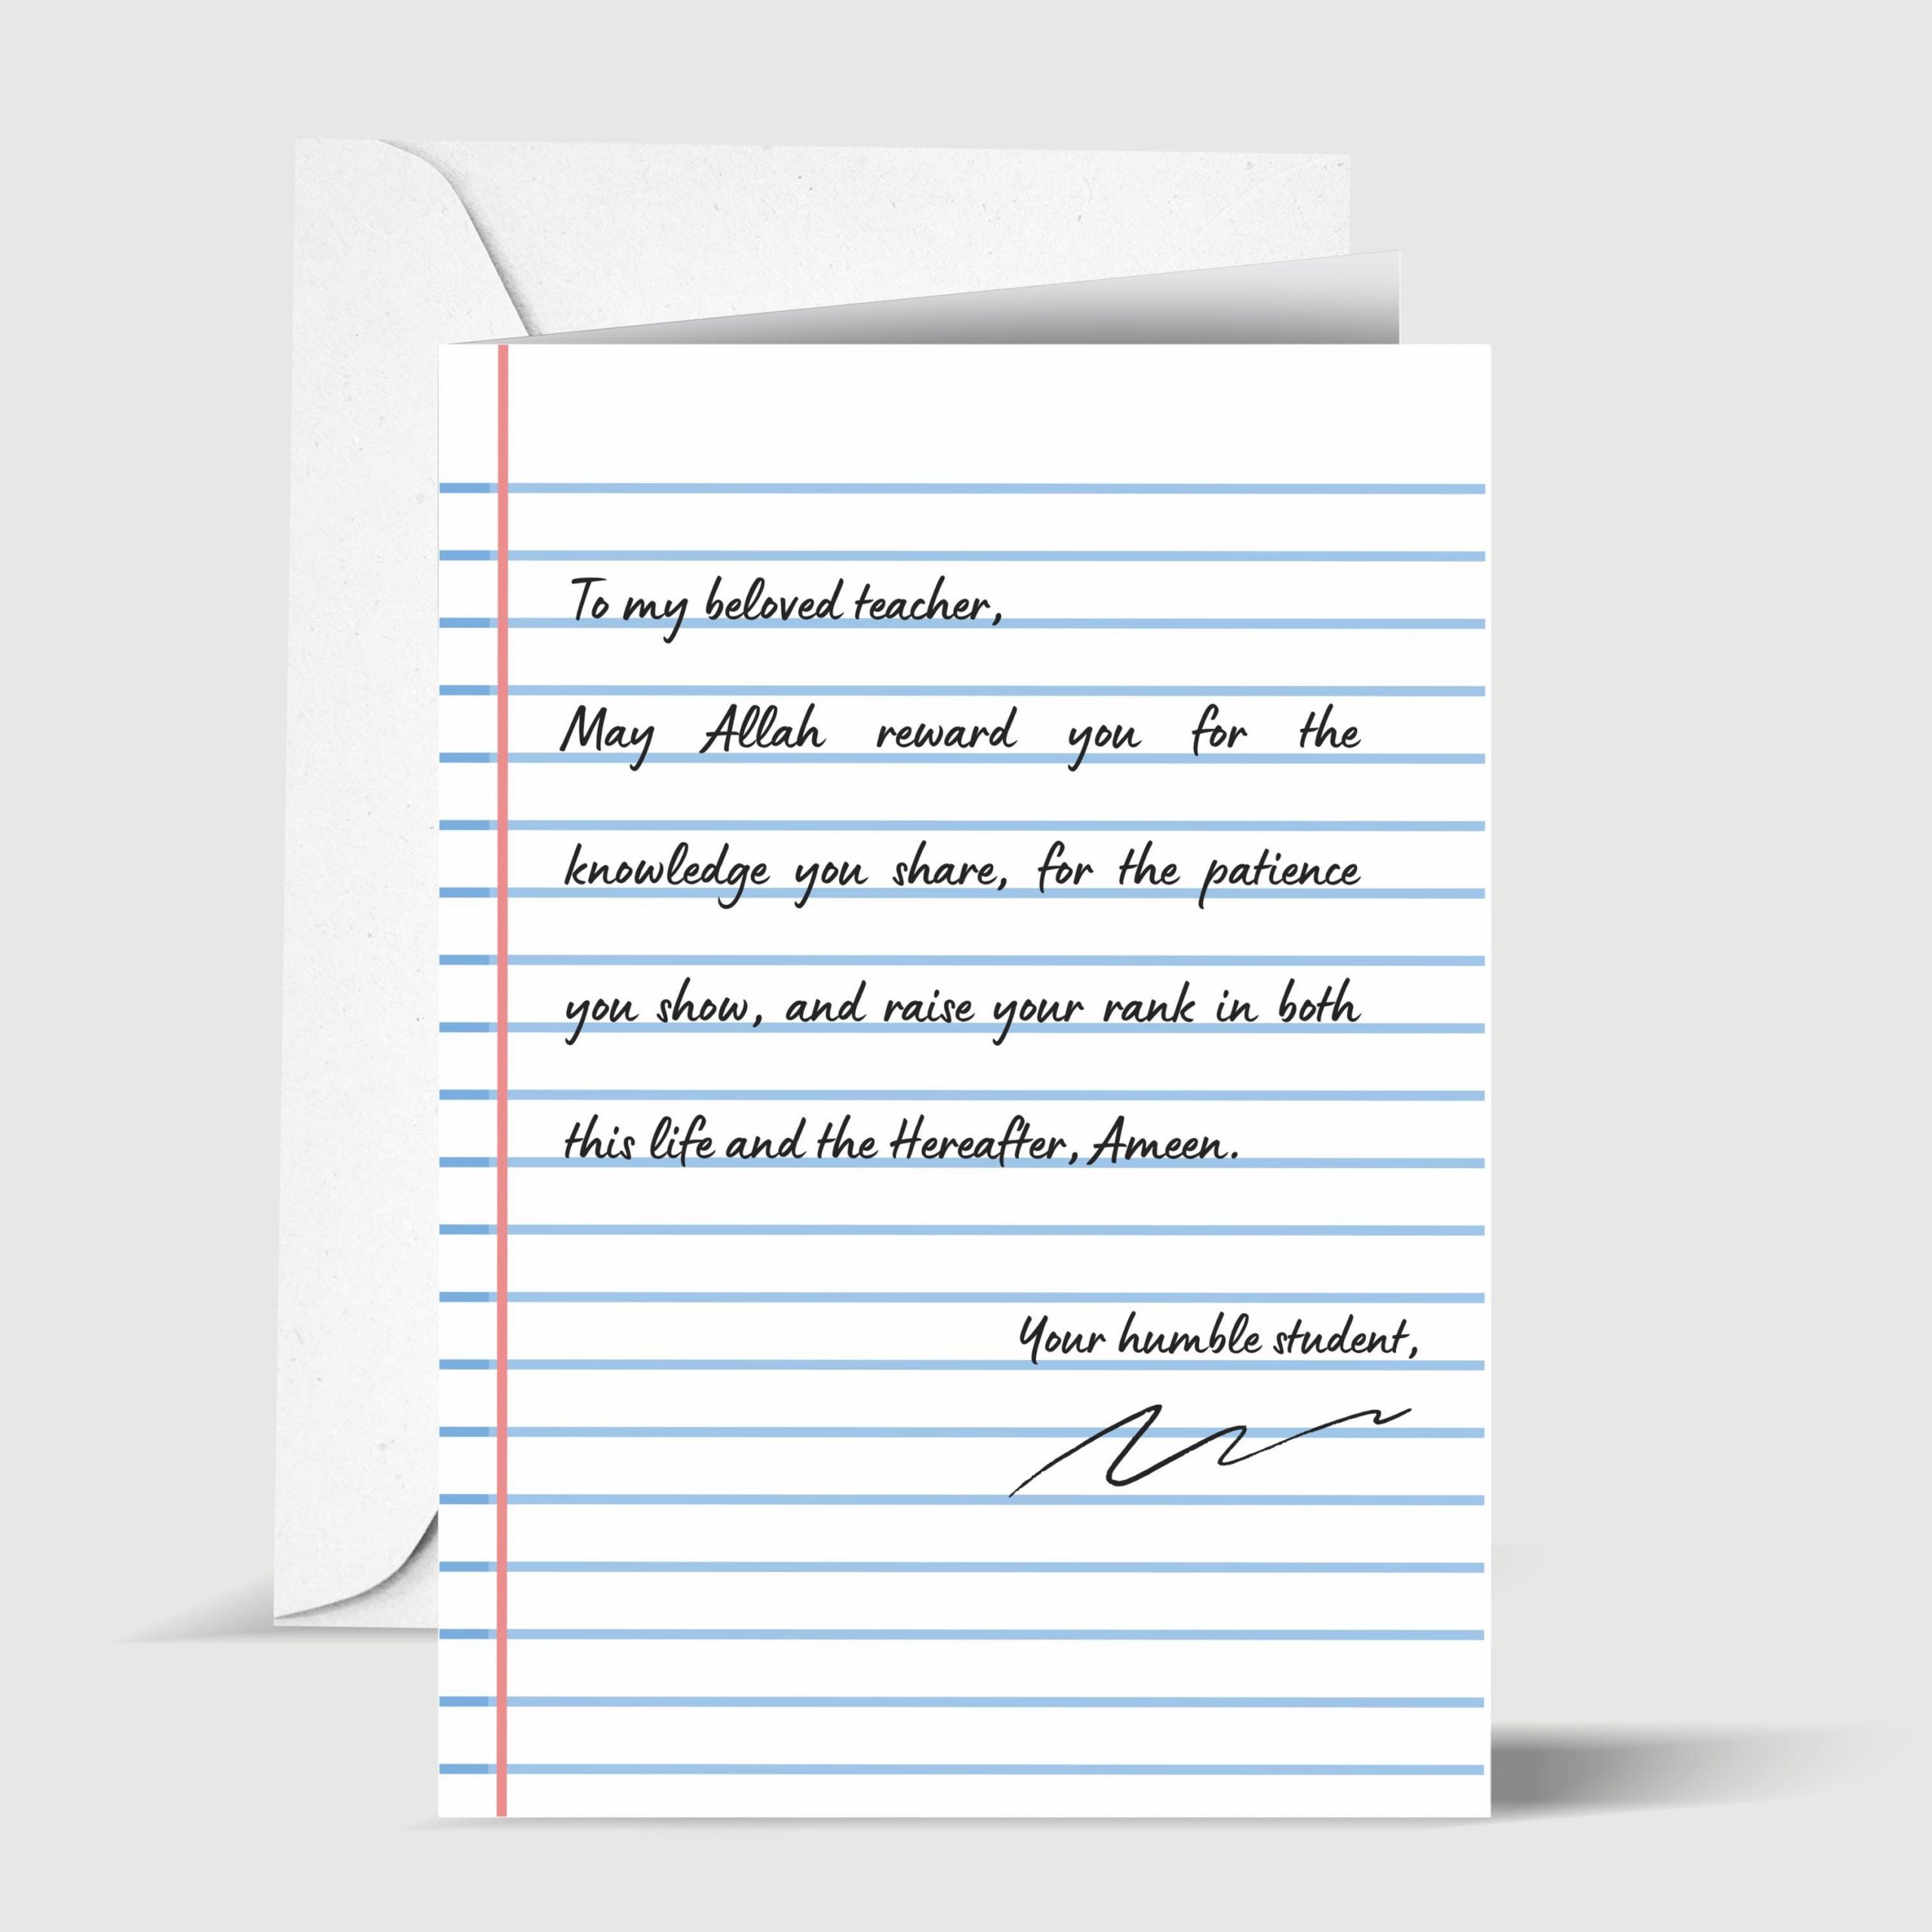 To my beloved teacher,
May Allah reward you for the
knowledge you share, for the patience
you show, and raise your rank in both
this life and the Hereafter, Ameen.
Your humble student,